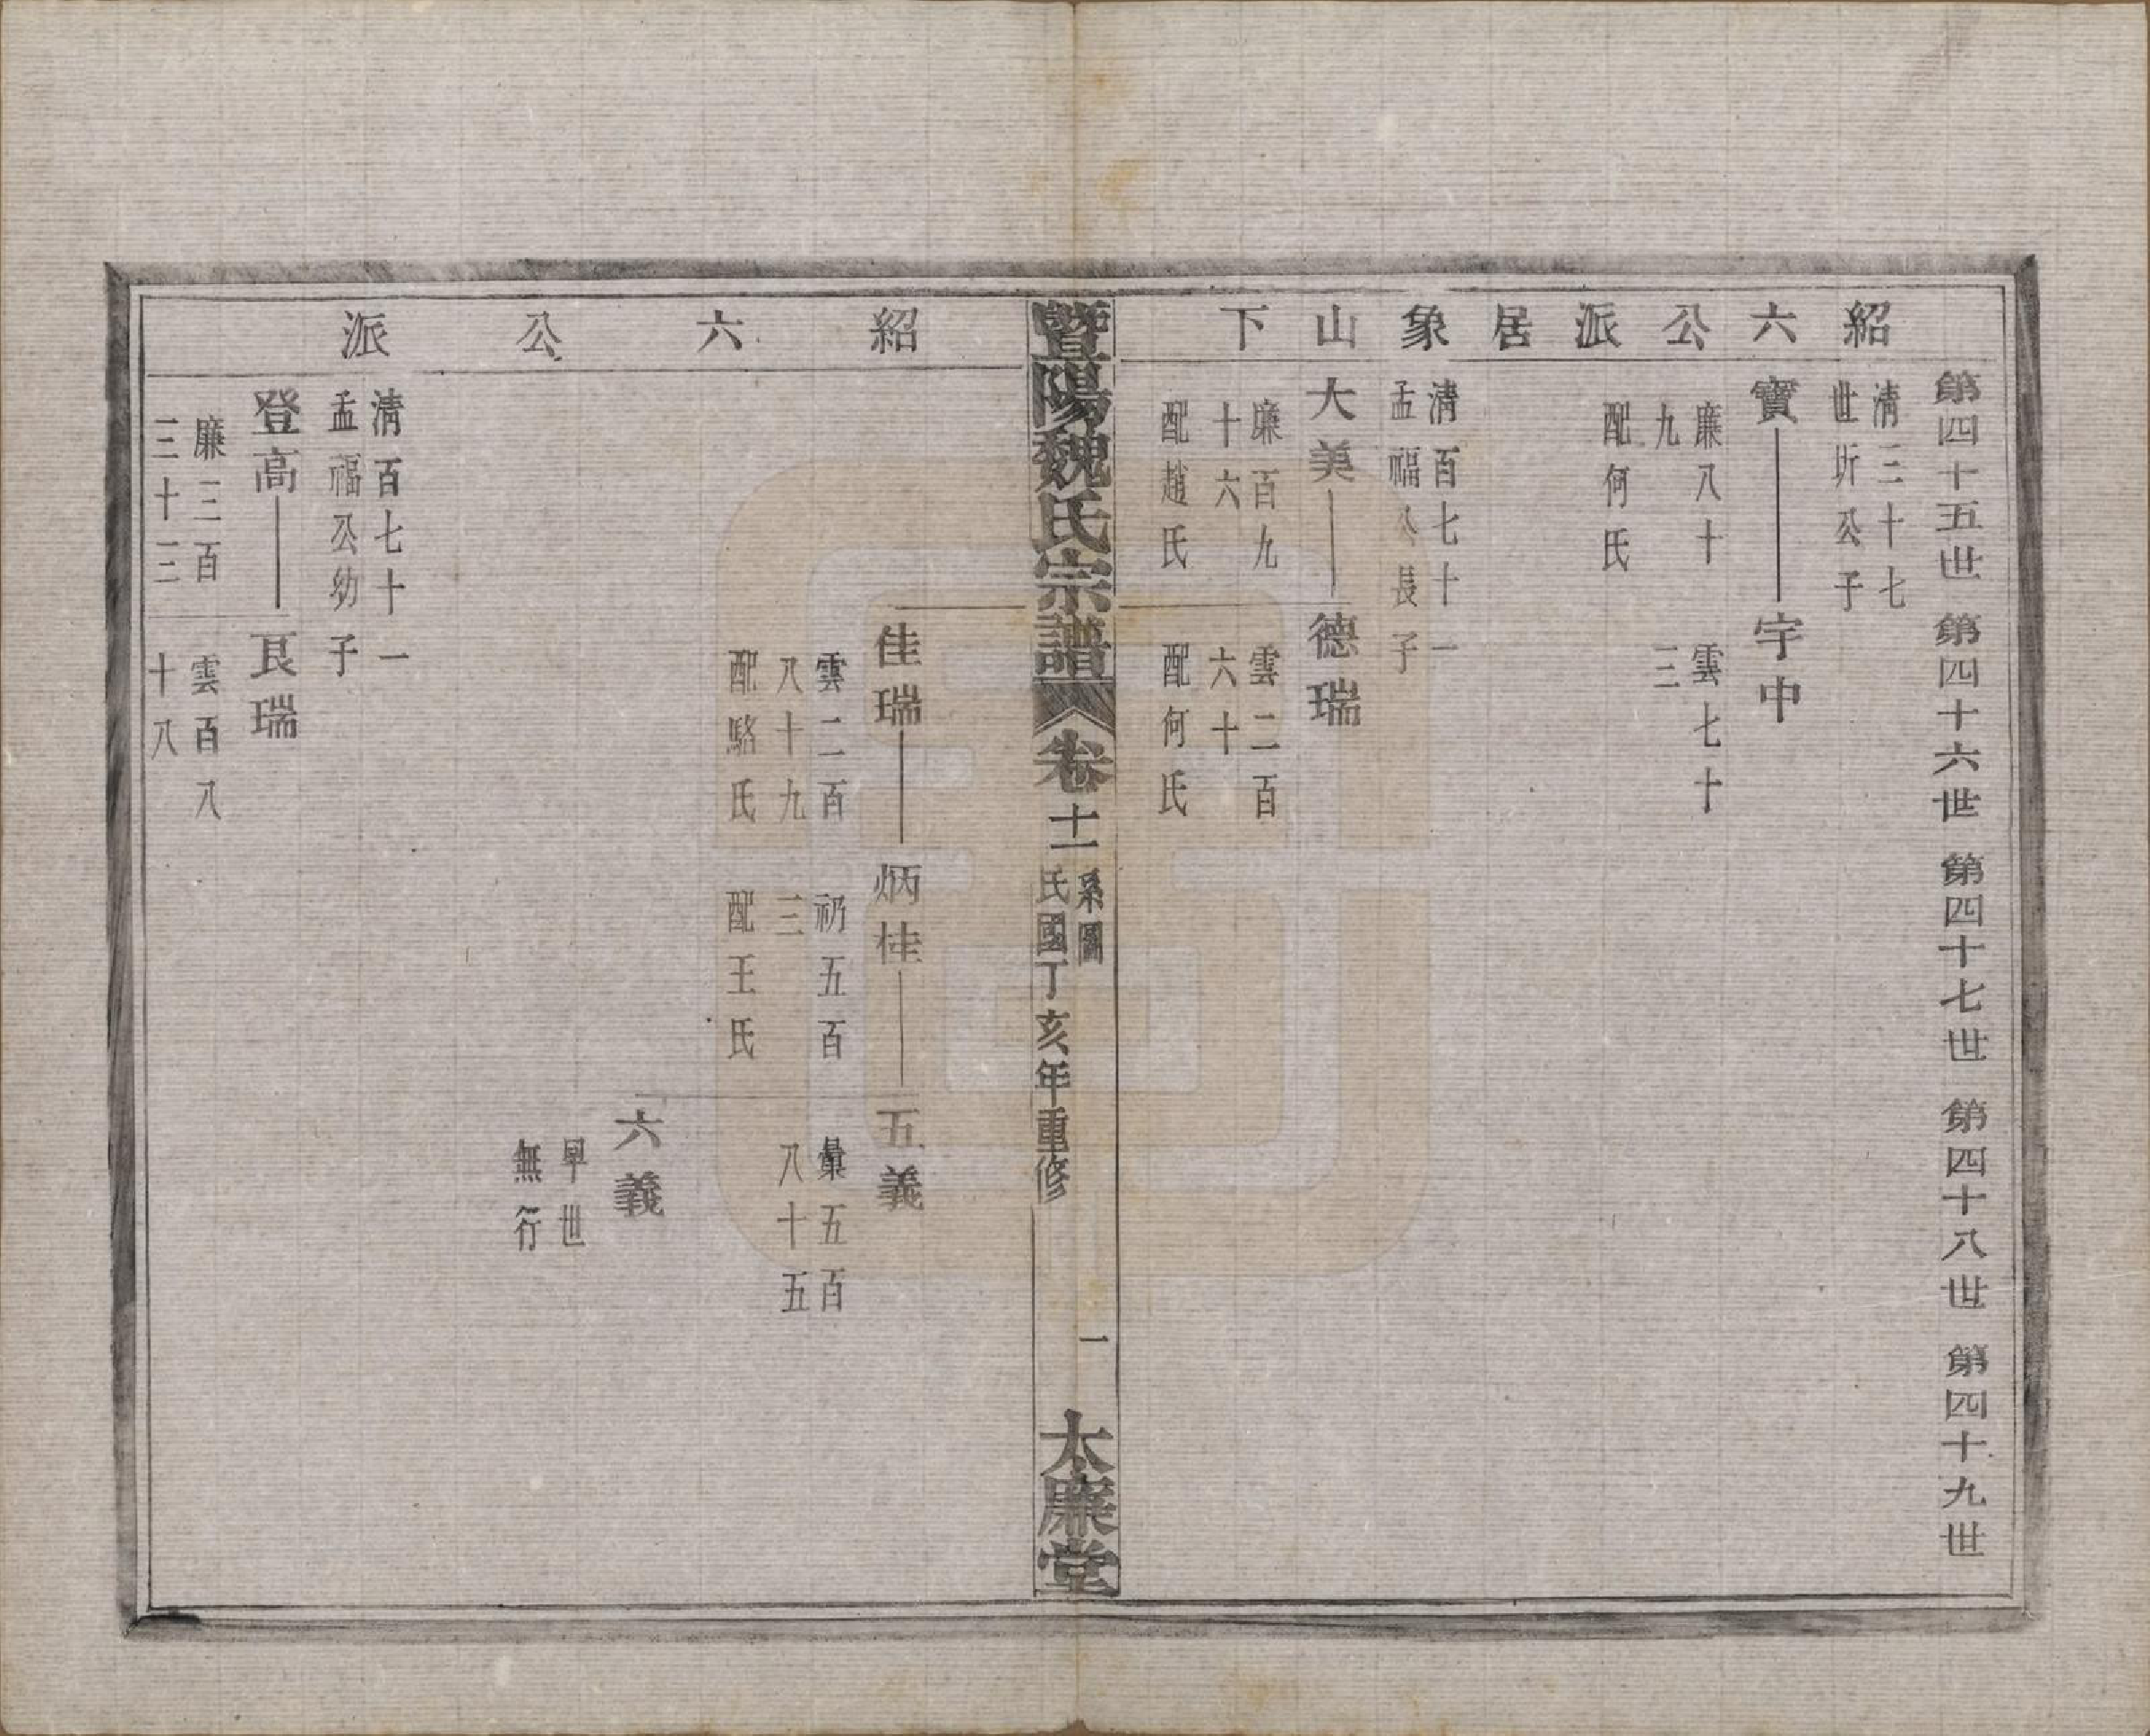 紹六公派居象山下
第四十五世 第四十六世 第四十七世 第四十八世 第四十九世
清三十七
世圻公子
寶 宇中
廉八十
九
配何氏
雲七十
三
清百七十一
孟福公長子
大美 德瑞
廉百九
十六
配趙氏
雲二百
六十
配何氏
暨陽魏氏宗譜 卷十一 系圖 民國丁亥年重修 一 大廉堂
紹六公派
佳瑞 炳桂 五義
雲二百
八十九
配駱氏
礽五百
三
配王氏
彙五百
八十五
六義
早世
無行
清百七十一
孟福公幼子
登高 艮瑞
廉三百
三十三
雲百八
十八